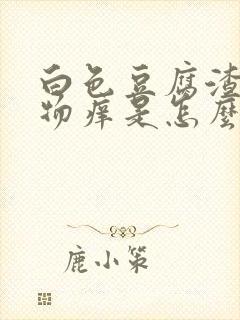 白色豆腐渣
物痒是怎麼
鹿小策